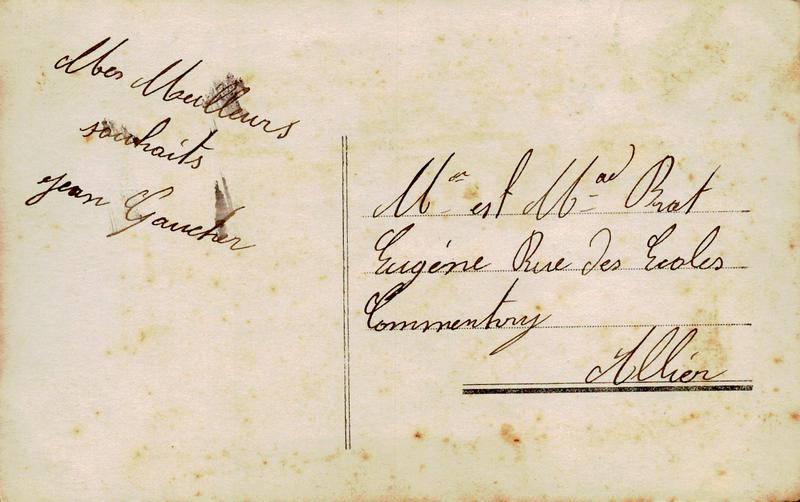 Mes Meilleurs
souhaits
Jean Gaucher
Mer est Mad Rat
Eugéne Rue des Ecoles
Commentry
Allier